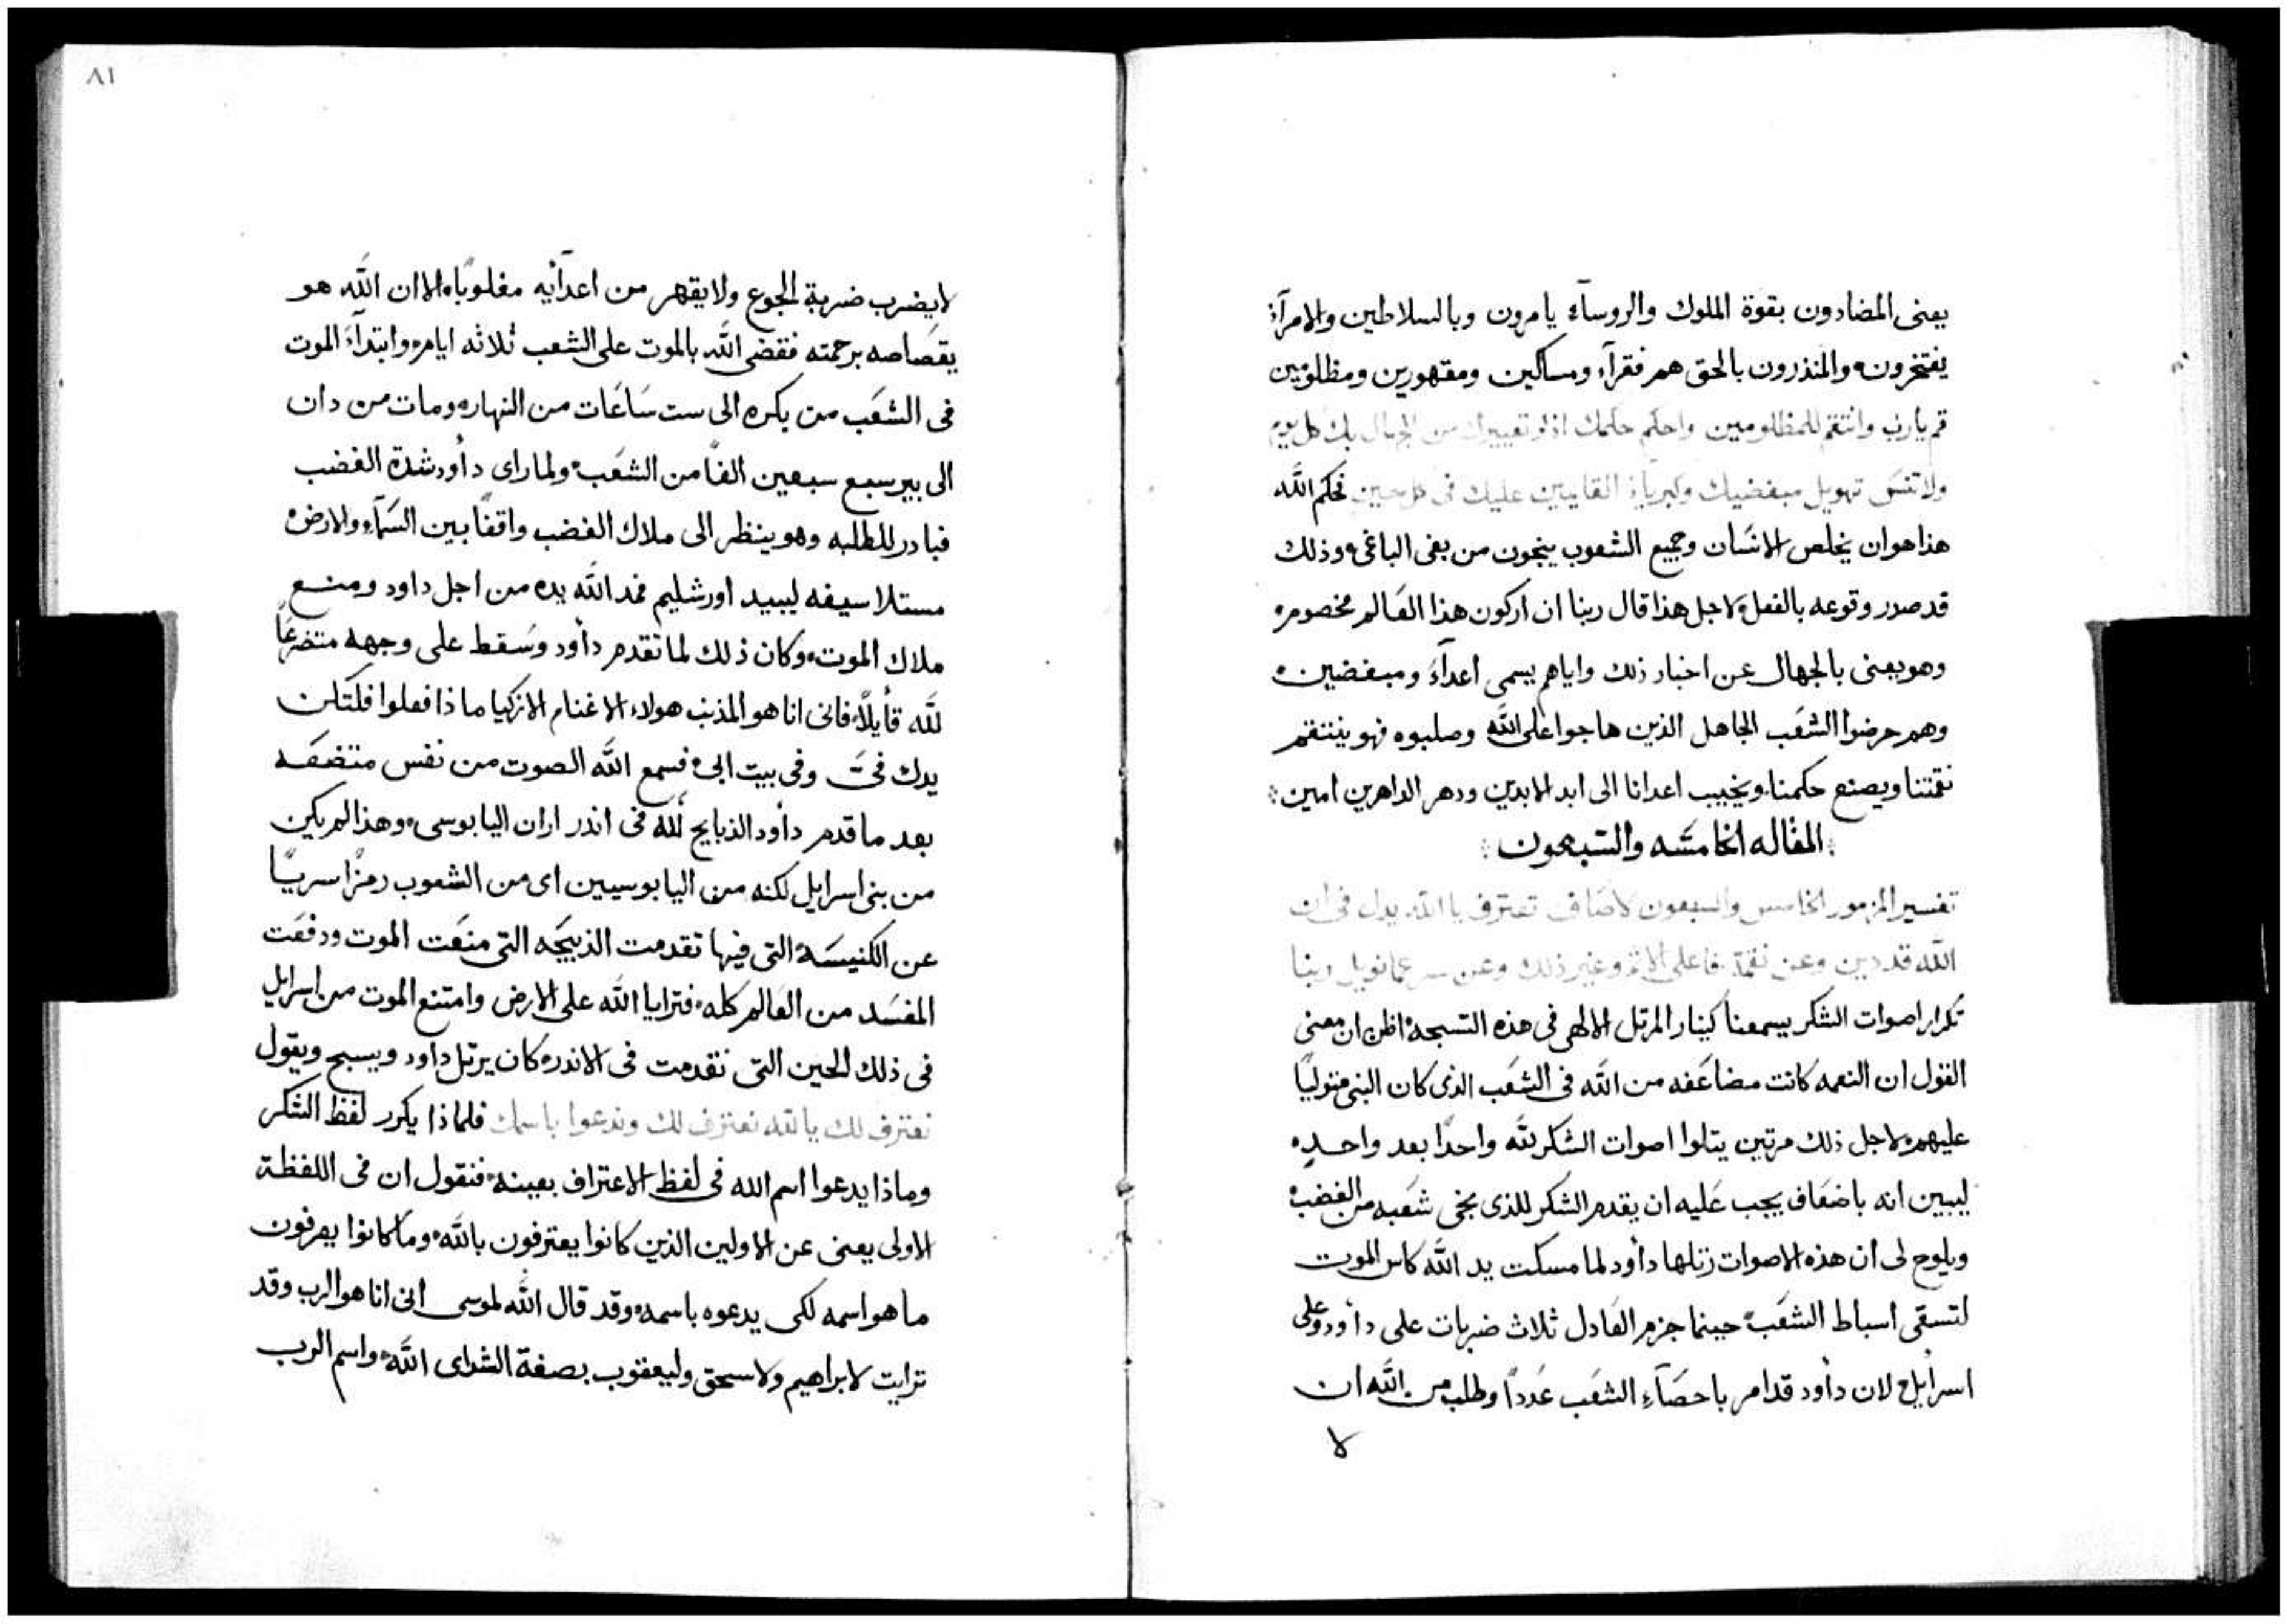 يعنى المضادون بقوة الملوك والروسآء يامرون وبالسلاطين والامرآء
يفتخرون والمنذرون بالحق هم فقرآء ومساكين ومقهورين ومظلومين
قم يارب وانتقم للمظلومين واحكم حكمك اذكر تعييرك من الجهال بك كل يوم
ولا تنسَ تهويل مبغضيك وكبرياء القايمين عليك فى كل حين فحكم الله
هذا هو ان يخلص الانسَان وجميع الشعوب ينجون من بغى الباغى وذلك
قد صدر وقوعه بالفعل لاجل هذا قال ربنا ان اركون هذا العَالم مخصوم
وهو يعنى بالجهال عن اخبار ذلك واياهم يسمى اعدآءَ ومبغضين
وهم حرضوا الشعَب الجاهل الذين هاجوا على اللّه وصلبوه فهو ينتقم
نقمتنا ويصنع حكمنا ويخيب اعدانا الى ابد الابدين ودهر الداهرين امين
المقاله الخامسَه والسَبعون
تفسير المزمور الخامس والسبعون لاصَاف تعترف يا اللّه يدل فى ان
اللّه قد دين وعن نقمة فاعلى الاثم وغير ذلك وعن سر عمانويل ربنا
تكرار اصوات الشكر يسمعنا كينار المرتل الالهى فى هذه التسبحة اظن ان معنى
القول ان النعمه كانت مضاعَفه من اللّه فى الشعَب الذى كان النبى متوليًا
عليهم لاجل ذلك مرتين يتلوا اصوات الشكر للّه واحدًا بعد واحده
ليبين انه باضعَاف يجب عَليه ان يقدم الشكر للذى نجى شعَبه من الغضب
ويلوح لى ان هذه الاصوات رتلها دأود لما مسكت يد اللّه كاس الموت
لتسقى اسباط الشعَب حينما جزم العَادل ثلاث ضربات على دأود وعلى
اسرأيل لان دأود قد امر باحصَآءِ الشعَب عَددًا وطلب من اللّه ان
لا
٨١
لايضرب ضربة الجوع ولا يقهر من اعدآئيه مغلوبًا الا ان اللّه هو
يقصَاصه برحمته فقضى اللّه بالموت على الشعب ثلاثه ايام وابتدآءَ الموت
فى الشعَب من بكره الى ست سَاعَات من النهار ومات من دان
الى بير سبع سبعين الفًا من الشعَب ولما راى دأود شدة الغضب
فبادر للطلبه وهو ينظر الى ملاك الغضب واقفًا بين السَمآءِ والارض
مستلا سيفه ليبيد اورشليم فمد اللّه يده من اجل داود ومنع
ملاك الموت وكان ذلك لما تقدم دأود وسَقط على وجهه متضرعًا
للّه قأيلاً فانى انا هو المذنب هولاء الاغنام الازكيا ماذا فعلوا فلتكن
يدك فىَّ وفى بيت ابى فسمع اللّه الصوت من نفس متضعَه
بعد ما قدم دأود الذبايح للّه فى اندر اران اليابوسى وهذا لم يكن
من بنى اسرايل لكنه من اليابوسيين اى من الشعوب رمزًا سريًا
عن الكنيسَة التى فيها تقدمت الذبيحَه التى منعَت الموت ودفعَت
المفسَد من العَالم كله فترايا اللّه على الارض وامتنع الموت من اسرايل
فى ذلك الحين التى تقدمت فى الاندر كان يرتل داود ويسبح ويقول
نعترف لك يا اللّه نعترف لك وندعوا باسمك فلماذا يكرر لفظ الشكر
وماذا يدعوا اسم اللّه فى لفظ الاعتراف بعينه فنقول ان فى اللفظة
الاولى يعنى عن الاولين الذين كانوا يعترفون باللّه وما كانوا يعرفون
ما هو اسمه لكى يدعوه باسمه وقد قال اللّه لموسى انى انا هو الرب وقد
ترايت لابراهيم ولاسحق وليعقوب بصفة الشداى اللّه واسم الرب